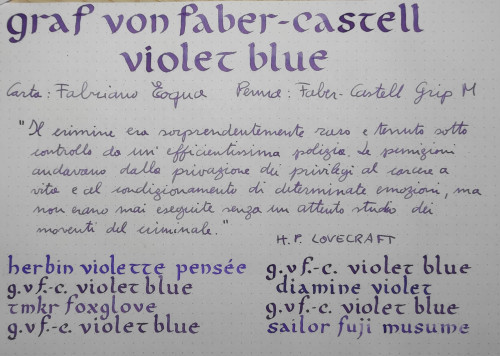 graf von faber-castell
violet blue
Carta: Fabriano Ecqua Penna: Faber-Castell Grip M
"Il crimine era sorprendentemente raro e tenuto sotto
controllo da un'efficientissima polizia. Le punizioni
andavano dalla privazione dei privilegi al carcere a
vita e al condizionamento di determinate emozioni, ma
non erano mai eseguite senza un attento studio dei
moventi del criminale."
H.P. LOVECRAFT
herbin violette pensée
g.v f.-c. violet blue
tmkr foxglove
g.v f.-c. violet blue
g.v f.-c. violet blue
diamine violet
g.v f.-c. violet blue
sailor fuji musume